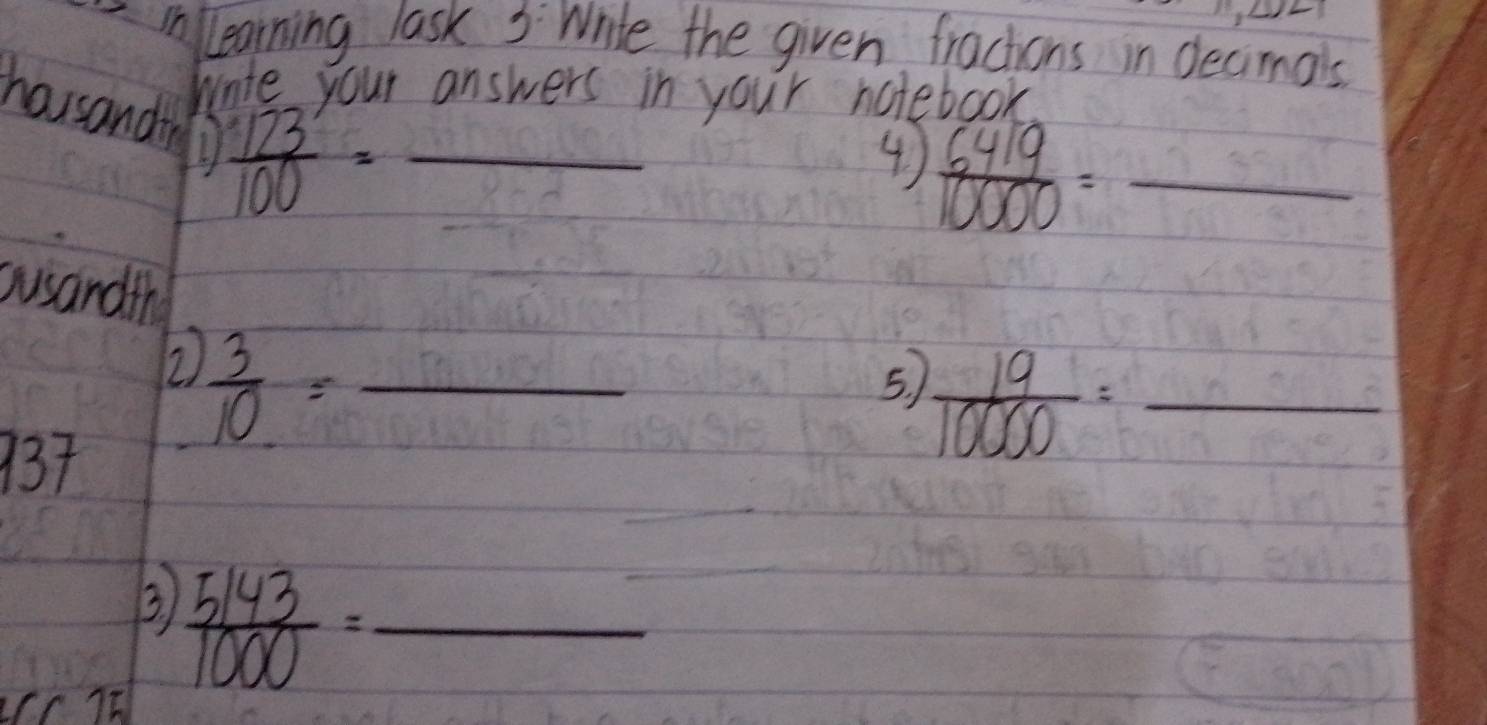 Learning Task 3: Write the given fractions in decimals.
Write your answers in your notebook.
1.) 123/100 = ______
4.) 6419/10000 = ______
2.) 3/10 = ______
5.) 19/10000 = ______
3.) 5143/1000 = ______
937